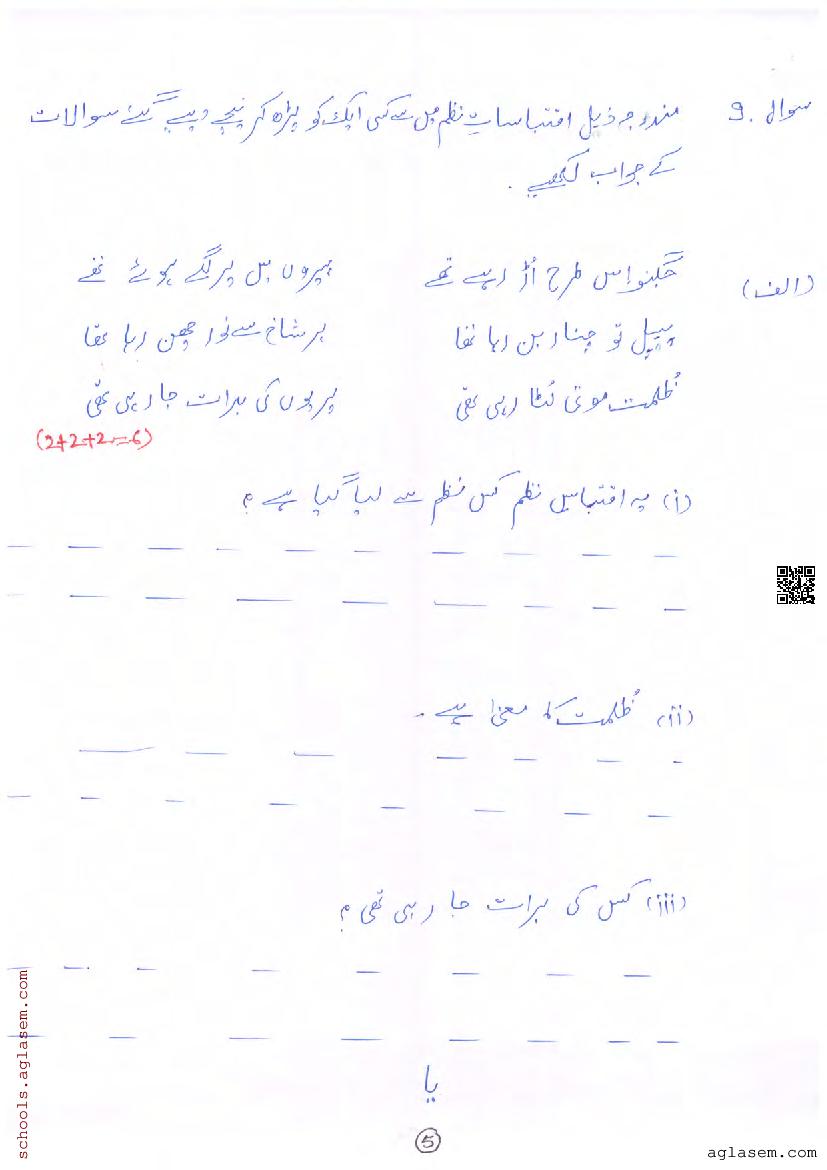 سوال 9. مندرجہ ذیل اقتباساتِ نظم میں سے کسی ایک کو پڑھ کر نیچے دیے گئے سوالات
کے جواب لکھیے.
(الف) جگنو اس طرح اُڑ رہے تھے ہیروں میں پر لگے ہوئے تھے
پیپل تو چنار بن رہا تھا ہر شاخ سے نور چھن رہا تھا
ظُلمت موتی لُٹا رہی تھی پریوں کی برات جا رہی تھی
(2+2+2=6)
(i) یہ اقتباسِ نظم کس نظم سے لیا گیا ہے؟
(ii) ظُلمت کا معنیٰ ہے۔
(iii) کس کی برات جا رہی تھی؟
یا
5
schools.aglasem.com
aglasem.com